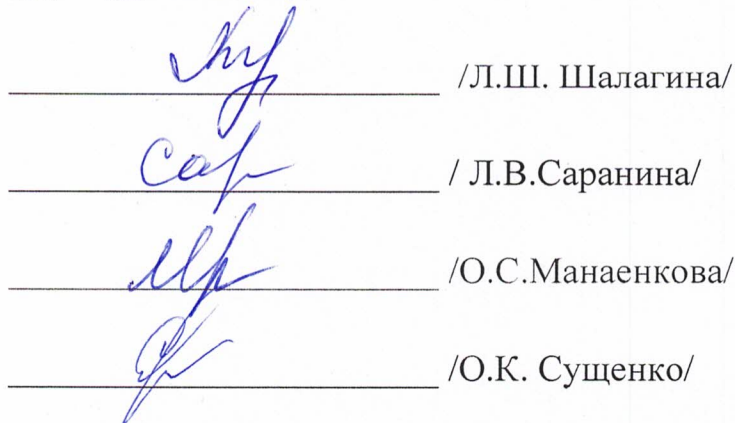 /Л.Ш. Шалагина/
Сар / Л.В.Саранина/
/О.С.Манаенкова/
/О.К. Сущенко/